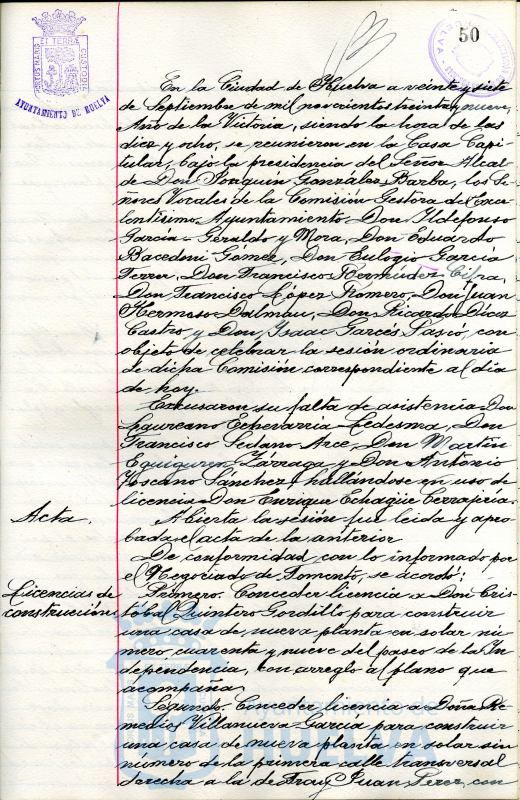 50
PORTUS MARIS ET TERRAE CUSTODIA
AYUNTAMIENTO DE HUELVA
En la Ciudad de Huelva a veinte y siete
de Septiembre de mil novecientos treinta y nueve,
Año de la Victoria, siendo la hora de las
diez y ocho, se reunieron en la Casa Capi-
tular, bajo la presidencia del Señor Alcal-
de Don Joaquín González Barba, los Se-
ñores Vocales de la Comisión Gestora del Exce-
lentísimo Ayuntamiento Don Ildefonso
García-Geraldo y Mora, Don Eduardo
Bacedoni Gómez, Don Eulogio García
Terrer, Don Francisco Bermúdez
Don Francisco López Romero, Don Juan
Hermoso Dalmau, Don Ricardo Díaz
Castro y Don Isaac Garcés Pascó, con
objeto de celebrar la sesión ordinaria
de dicha Comisión correspondiente al día
de hoy.
Excusaron su falta de asistencia Don
Laureano Echevarría Ledesma, Don
Francisco Sedano Arce, Don Martín
Eguiguren Zárraga, y Don Antonio
Toscano Sánchez, hallándose en uso de
licencia Don Enrique Echagüe
Acta.
Abierta la sesión fue leída y apro-
bada el acta de la anterior
De conformidad con lo informado por
el Negociado de Fomento, se acordó:
Licencias de
construcción
Primero. Conceder licencia a Don Cris-
tóbal Quintero Gordillo para construir
una casa de nueva planta en solar nú-
mero cuarenta y nueve del paseo de la In-
dependencia, con arreglo al plano que
acompaña.
Segundo. Conceder licencia a Doña Re-
medios Villanueva García para construir
una casa de nueva planta en solar sin
número de la primera calle transversal
derecha a la de Fray Juan Pérez, con